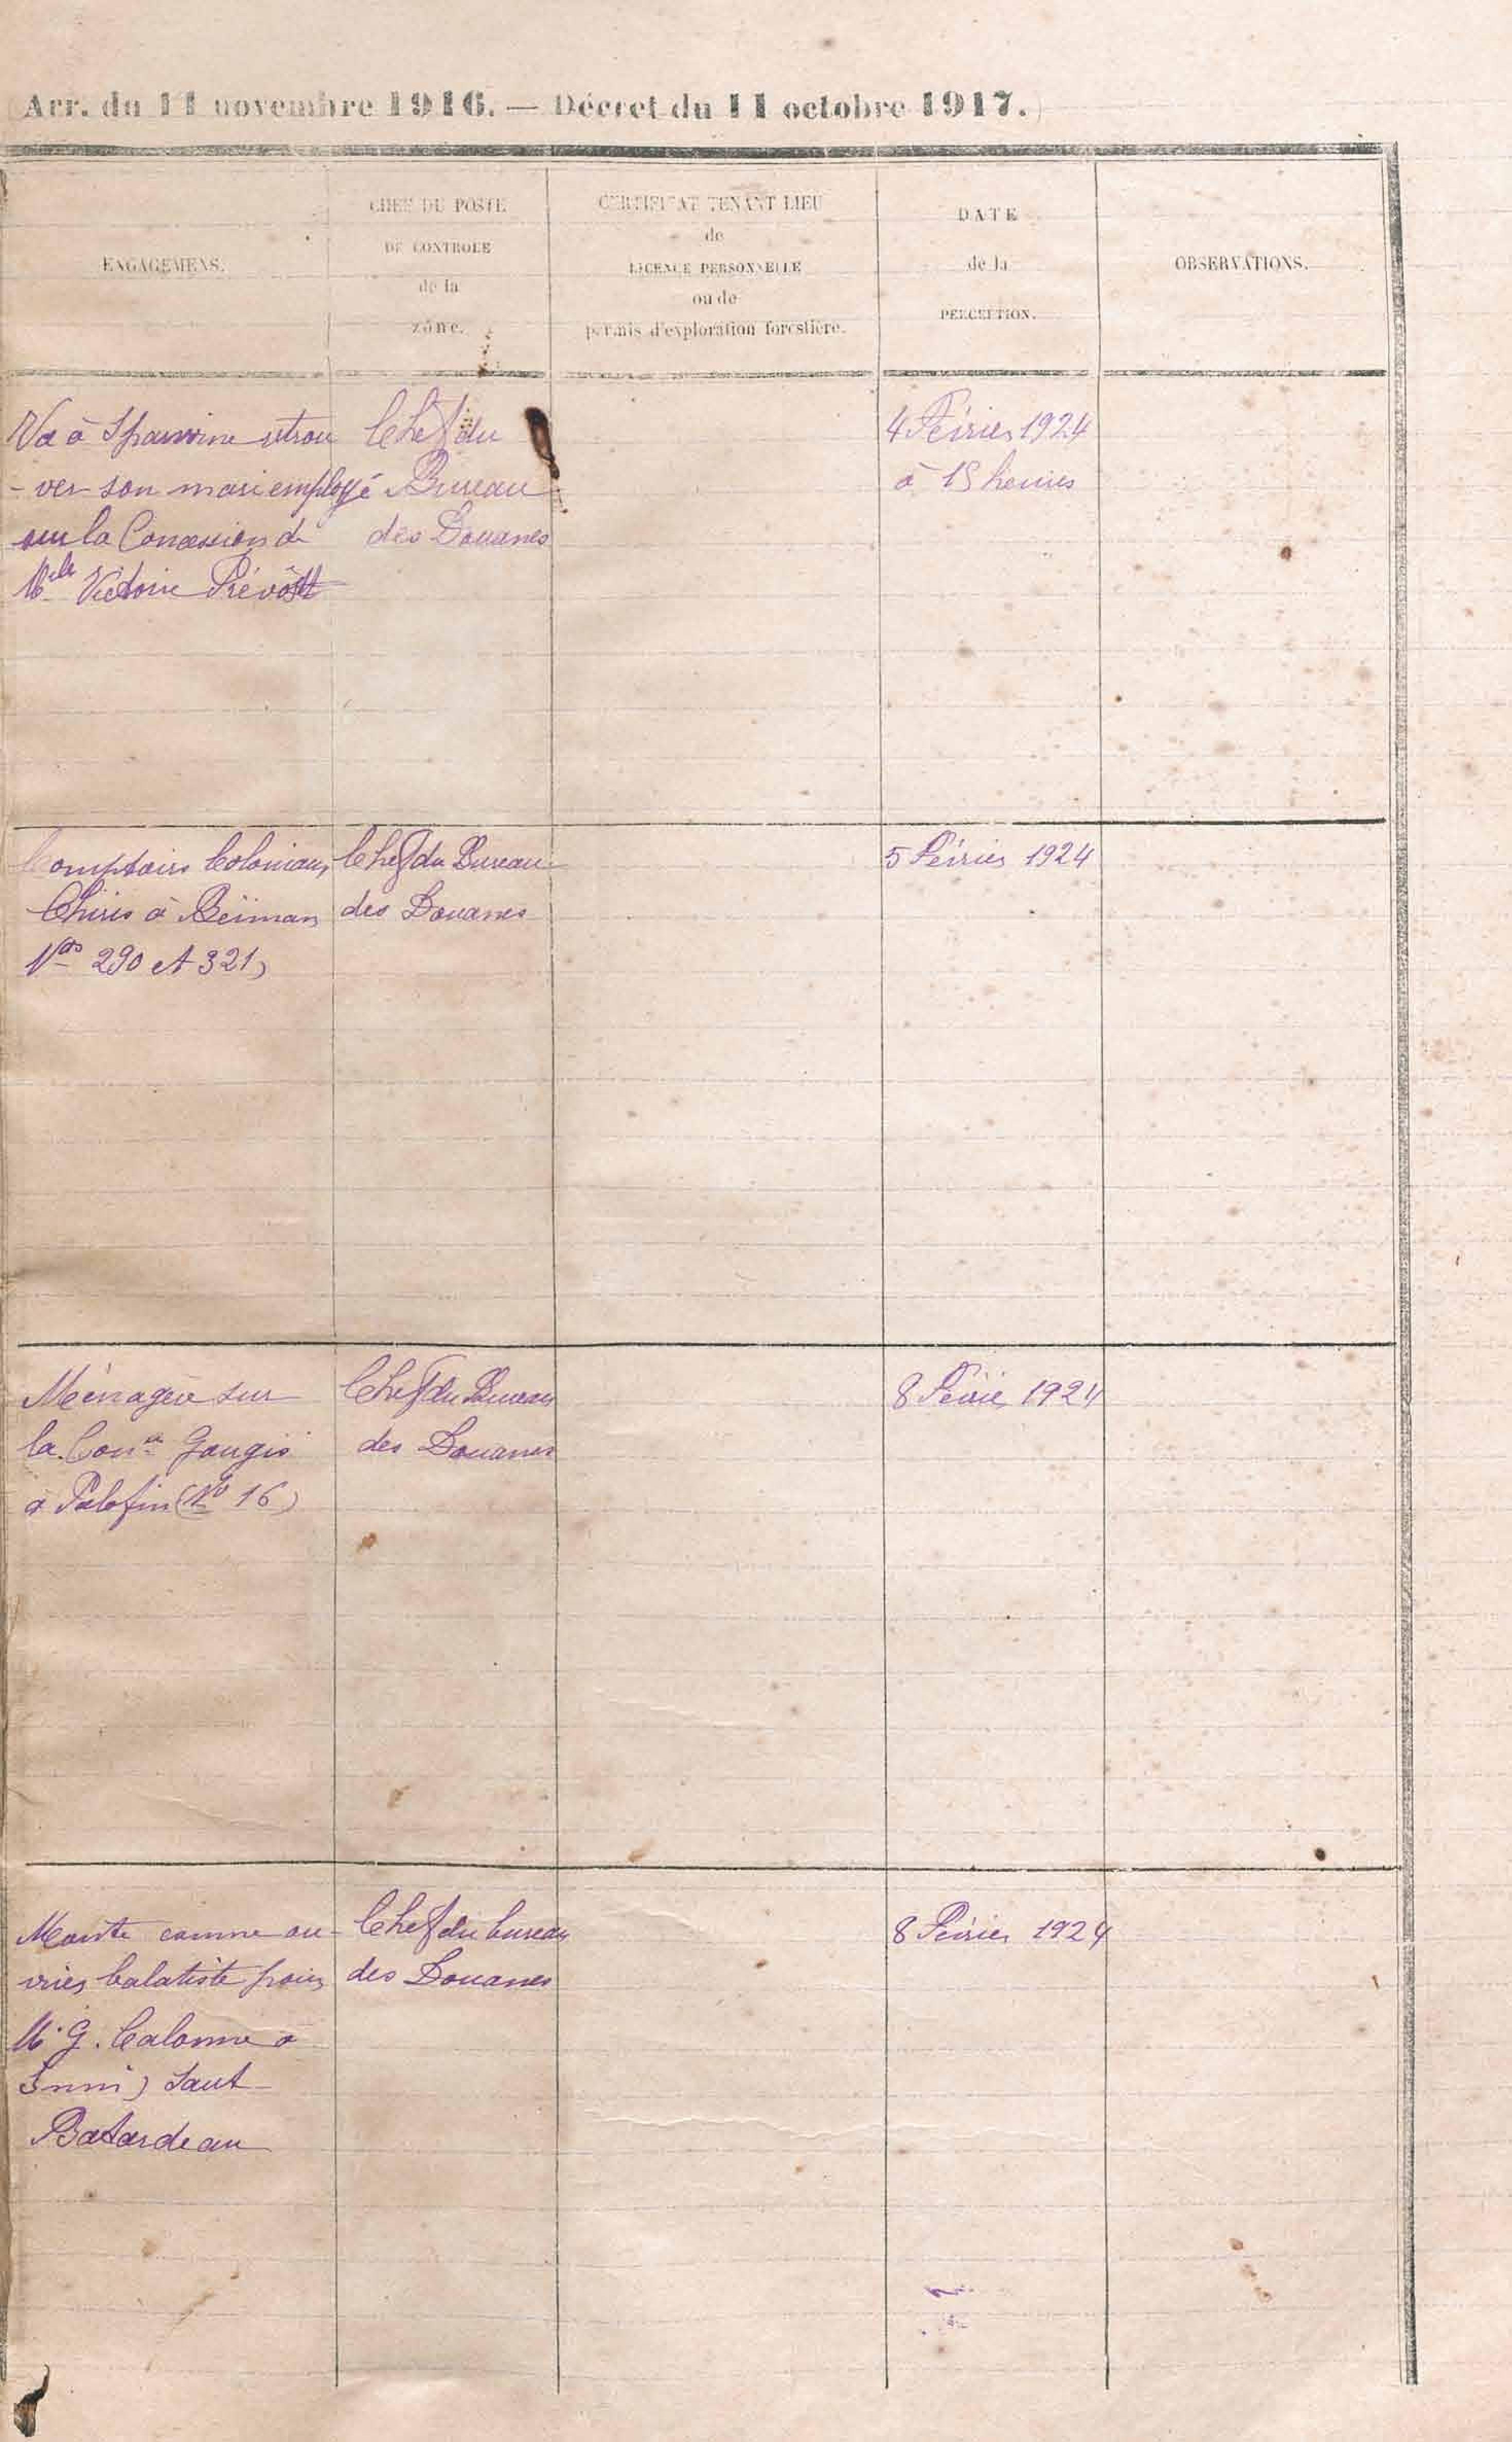 (Arr. du 11 novembre 1916. — Décret du 11 octobre 1917.)
ENGAGEMENS.
CHEF DU POSTE
DE CONTROLE
de la
zône.
CERTIFICAT TENANT LIEU
de
LICENCE PERSONNELLE
ou de
permis d'exploration forestière.
DATE
de la
PERCEPTION.
OBSERVATIONS.
Va à Sparwine retrou
- ver son mari employé
sur la Concession de
Melle Victoire Prévost
Chef du
Bureau
des Douanes
4 Février 1924
à 15 heures
Comptoirs Coloniaux
Chiris à Beïman
Nos 290 et 321
Chef du Bureau
des Douanes
5 Février 1924
Ménagère sur
la Conon Gougis
à Palofin (No 16)
Chef du Bureau
des Douanes
8 Février 1924
Monte comme ou-
vrier balatiste pour
M. G. Calonne à
Inini) Saut
Batardeau
Chef du bureau
des Douanes
8 Février 1924